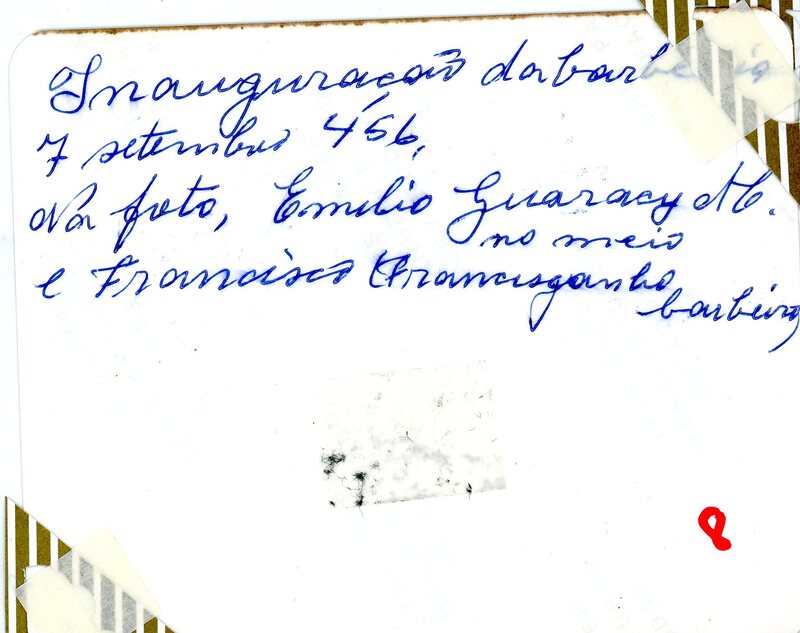 Inauguração da barbearia
7 setembro 456.
Na foto, Emilio Guaracy M.
no meio
e Francisco (Francisquinho
barbeiro)
8